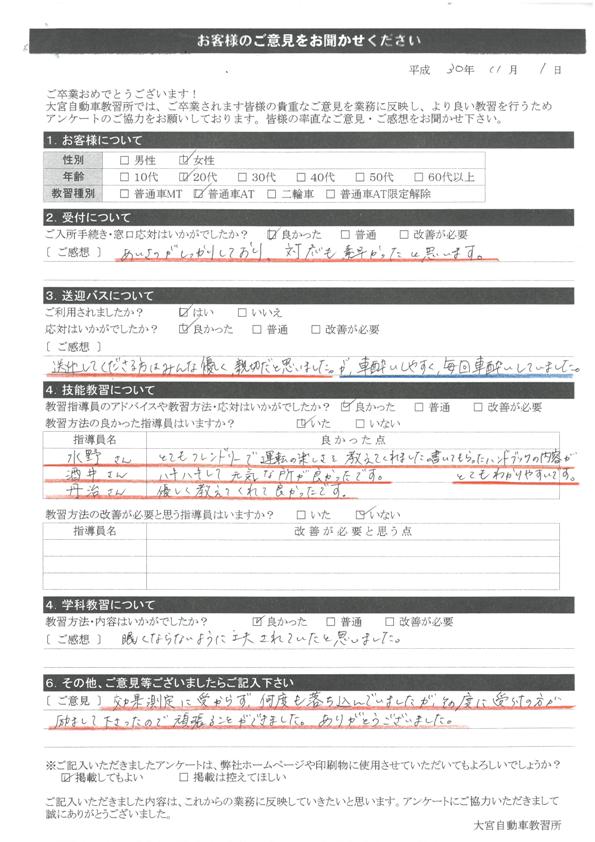 お客様のご意見をお聞かせください
平成 30年 11月 1日
ご卒業おめでとうございます!
大宮自動車教習所では、ご卒業されます皆様の貴重なご意見を業務に反映し、より良い教習を行うため
アンケートのご協力をお願いしております。皆様の率直なご意見・ご感想をお聞かせ下さい。
1. お客様について
性別 □ 男性 ☑ 女性
年齢 □ 10代 ☑ 20代 □ 30代 □ 40代 □ 50代 □ 60代以上
教習種別 □ 普通車MT ☑ 普通車AT □ 二輪車 □ 普通車AT限定解除
2. 受付について
ご入所手続き・窓口応対はいかがでしたか? ☑ 良かった □ 普通 □ 改善が必要
[ ご感想 ] あいさつがしっかりしており、対応も素早かったと思います。
3. 送迎バスについて
ご利用されましたか? ☑ はい □ いいえ
応対はいかがでしたか? ☑ 良かった □ 普通 □ 改善が必要
[ ご感想 ]
送迎してくださる方はみんな優しく親切だと思いましたが、車酔いしやすく、毎回車酔いしていました。
4. 技能教習について
教習指導員のアドバイスや教習方法・応対はいかがでしたか? ☑ 良かった □ 普通 □ 改善が必要
教習方法の良かった指導員はいますか? ☑ いた □ いない
指導員名 良かった点
水野さん とてもフレンドリーで運転の楽しさを教えてくれました。書いてもらったハンドブックの内容が
酒井さん ハキハキして元気な所が良かったです。 とてもわかりやすいです。
丹治さん 優しく教えてくれて良かったです。
教習方法の改善が必要と思う指導員はいますか? □ いた ☑ いない
指導員名 改善が必要と思う点
4. 学科教習について
教習方法・内容はいかがでしたか? ☑ 良かった □ 普通 □ 改善が必要
[ ご感想 ] 眠くならないように工夫されていたと思いました。
6. その他、ご意見等ございましたらご記入下さい
[ ご意見 ] 効果測定に受からず、何度も落ち込んでいましたが、その度に受付の方が
励まして下さったので頑張ることができました。ありがとうございました。
※ご記入いただきましたアンケートは、弊社ホームページや印刷物に使用させていただいてもよろしいでしょうか?
☑ 掲載してもよい □ 掲載は控えてほしい
ご記入いただきました内容は、これからの業務に反映していきたいと思います。アンケートにご協力いただきまして
誠にありがとうございました。
大宮自動車教習所